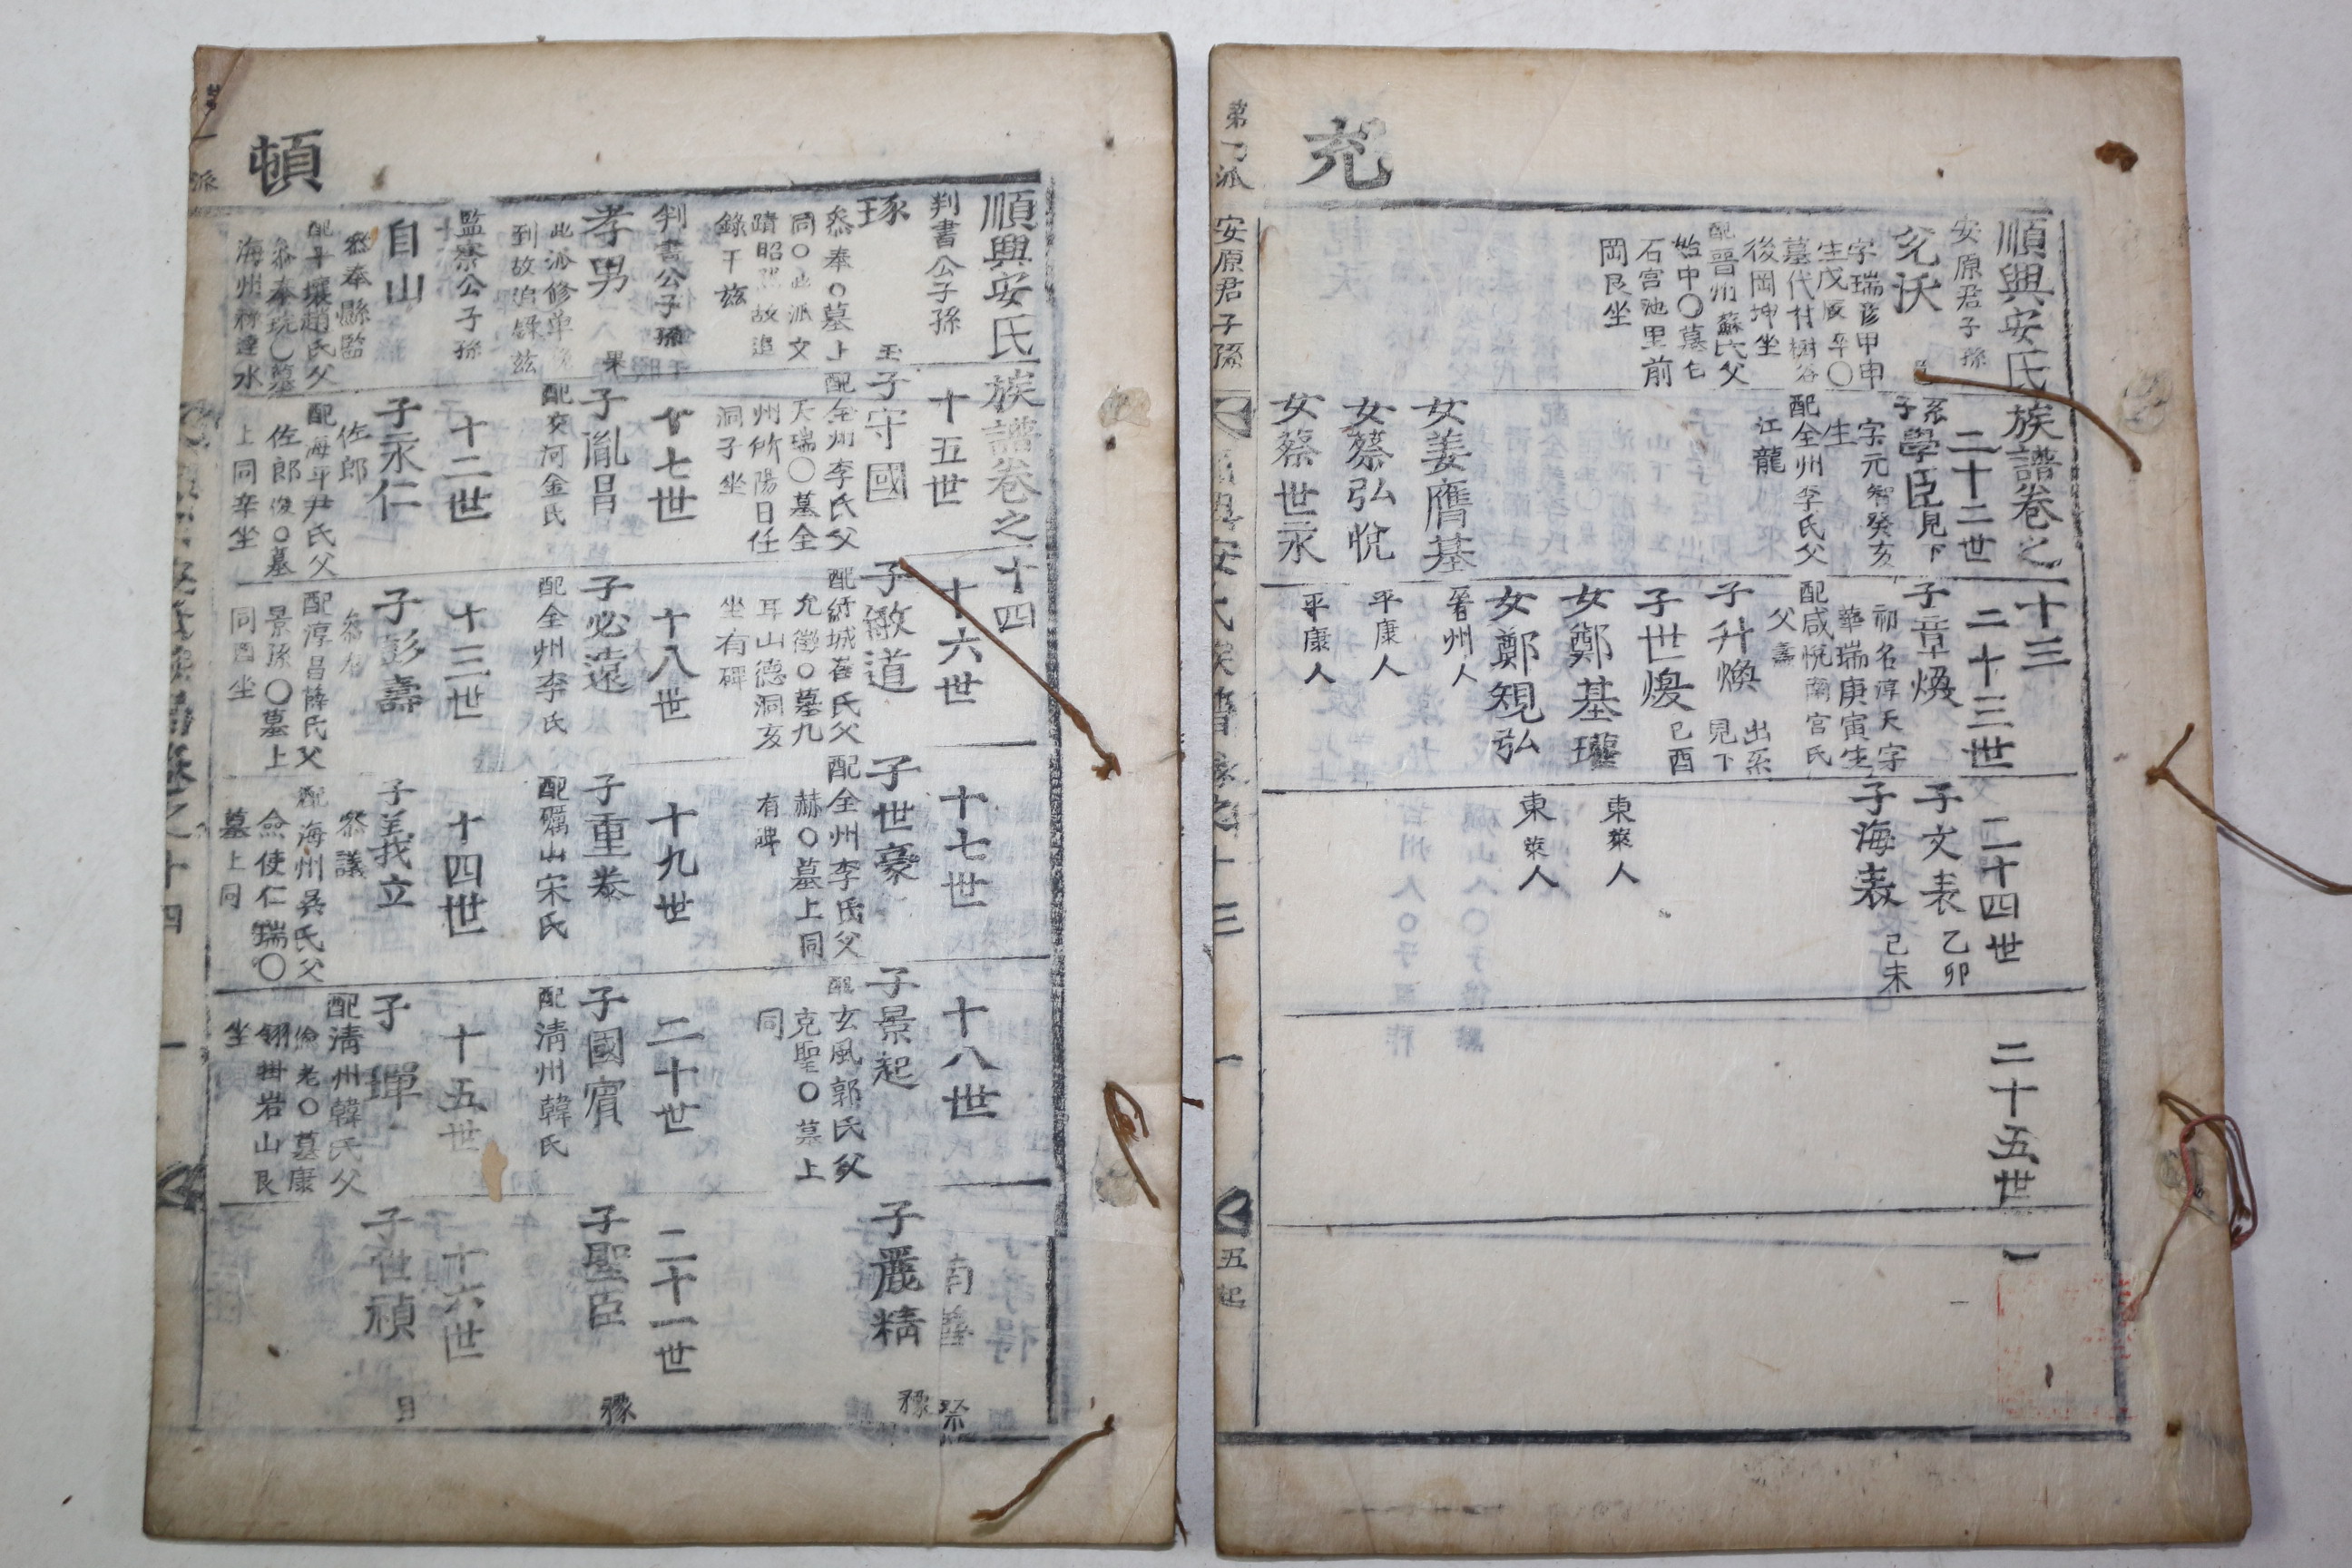 充
順興安氏族譜卷之十三
安原君子孫
二十二世
二十三世
二十四世
二十五世
一
允沃
字瑞彦甲申
生戊辰卒〇
墓代村樹谷
後岡坤坐
配晋州蘇氏父
始中〇墓七
石宮池里前
岡艮坐
系
子學臣見下
字元智癸亥
生
配全州李氏父
江龍
女姜膺基
晉州人
女蔡弘悅
平康人
女蔡世永
平康人
子章煥
初名淳天字
華瑞庚寅生
配咸悅南宮氏
父壽
子升煥
出系
見下
子世煖
己酉
女鄭基瓘
東萊人
女鄭覌弘
東萊人
子文表
乙卯
子海表
己未
安原君子孫
五起
頓
順興安氏族譜卷之十四
判書公子孫
十五世
十六世
十七世
十八世
琢
叅奉〇墓上
同〇此派文
蹟昭然故追
錄于玆
子守國
配全州李氏父
天瑞〇墓全
州竹陽日任
洞子坐
子敏道
配紆城崔氏父
允徵〇墓九
耳山德洞亥
坐有碑
子世豪
配全州李氏父
赫〇墓上同
有碑
子景起
配玄風郭氏父
克聖〇墓上
同
子麗精
判書公子孫
十七世
十八世
十九世
二十世
二十一世
孝男
此派修單
到故追錄玆
子胤昌
配交河金氏
子必遠
配全州李氏
子重泰
配礪山宋氏
子國賓
配淸州韓氏
子聖臣
監察公子孫
十二世
十三世
十四世
十五世
十六世
自山
叅奉縣監
配平壤趙氏父
子永仁
佐郎
配海平尹氏父
佐郎俊〇墓
上同辛坐
子彭壽
配淳昌薛氏父
景孫〇墓上
同酉坐
子義立
叅議
配海州吳氏父
僉使仁瑞〇
墓上同
子琿
配淸州韓氏父
儉老〇墓康
翎掛岩山艮
坐
子世禎